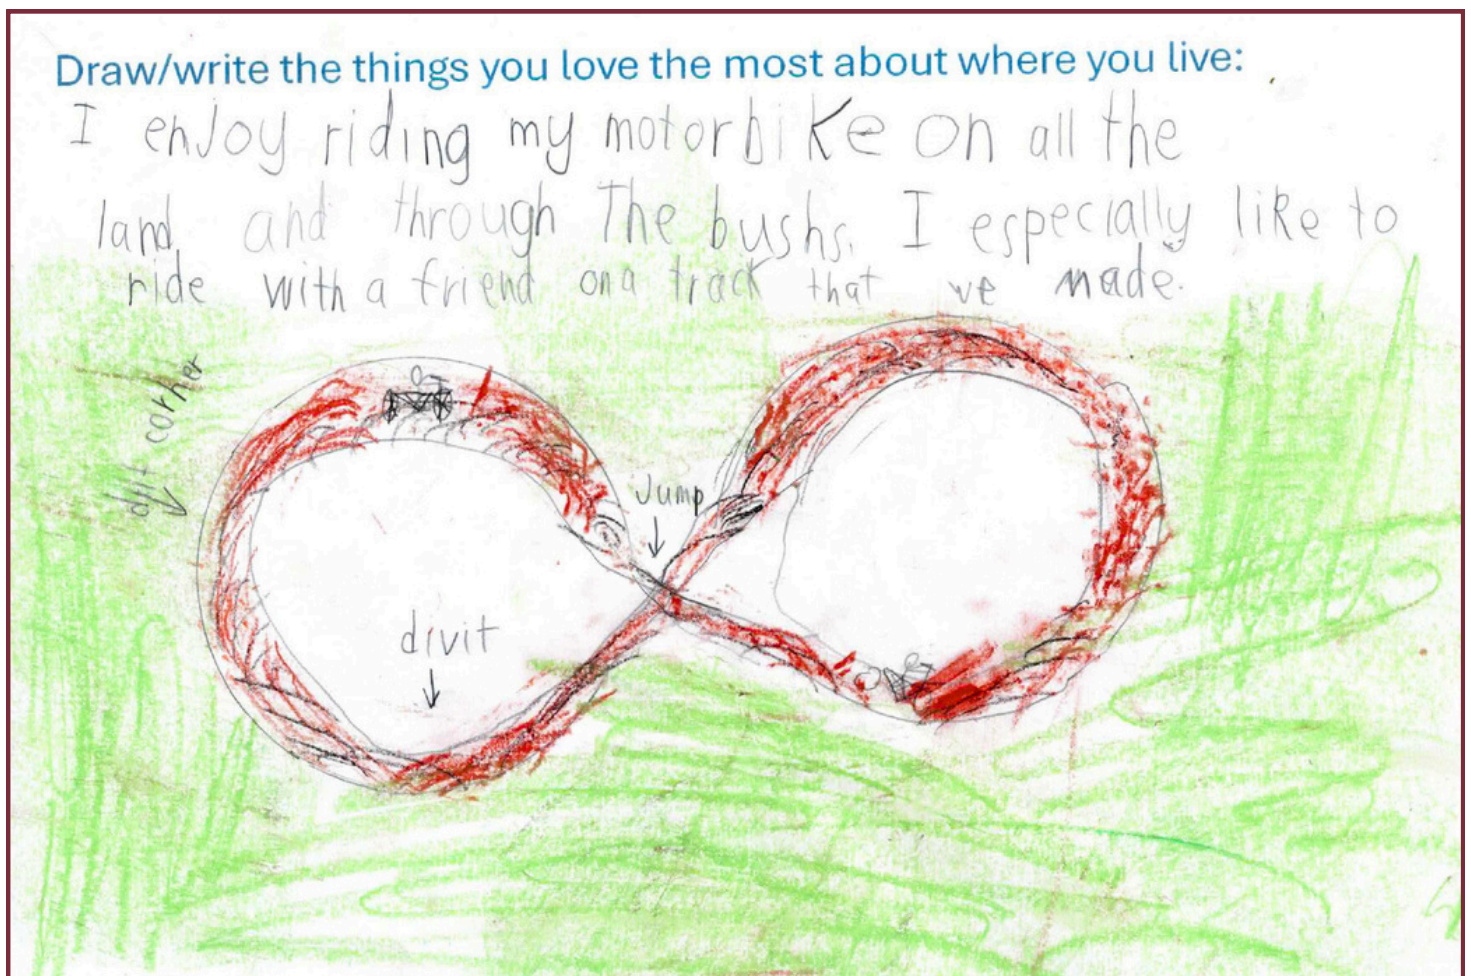 Draw/write the things you love the most about where you live:
I enJoy riding my motorbike on all the
land and through The bushs. I especially like to
ride with a friend on a track that we made.
corner
Jump
divit